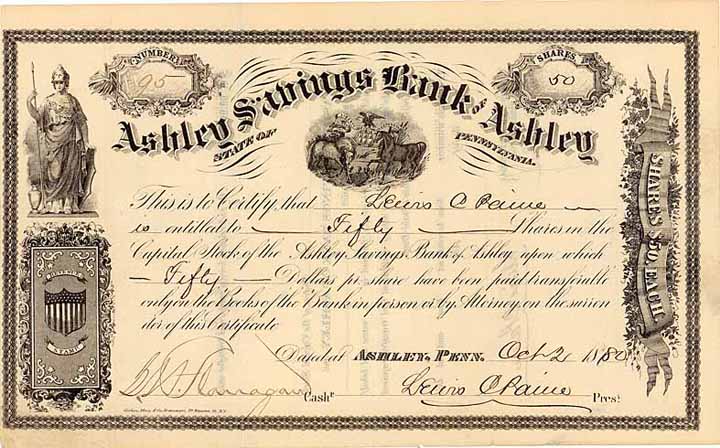 NUMBER
95
SHARES
50
Ashley Savings Bank of Ashley
STATE OF PENNSYLVANIA.
This is to Certify that Lewis C Paine
is entitled to Fifty Shares in the
Capital Stock of the Ashley Savings Bank of Ashley upon which
Fifty Dollars pr share have been paid transferable
only on the Books of the Bank in person or by Attorney on the surren
der of this Certificate
Dated at ASHLEY, PENN. Oct 2 1880
Cashr. Lewis C Paine Prest.
SHARES $50 EACH.
REVENUE
STAMP